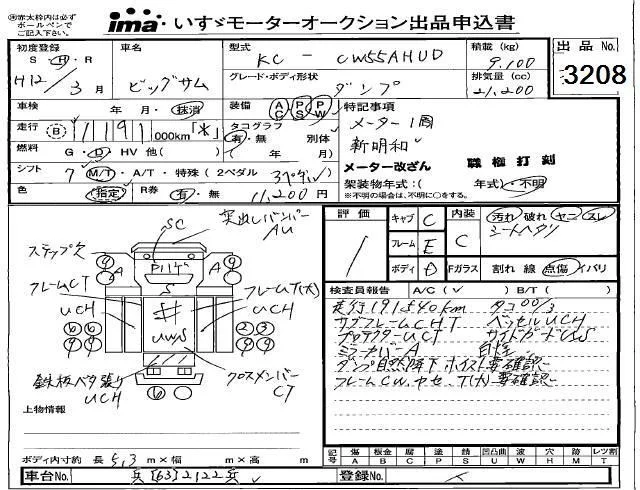 ※赤太枠内は必ず
ボールペンで
ご記入下さい。
ima いすゞモーターオークション出品申込書
初度登録
S・H・R
H12/3月
車名
ビッグサム
型式
KC-CW55AHUD
積載 (kg)
9,100
出品No.
3208
グレード・ボディ形状
ダンプ
排気量 (cc)
21,200
車検
年・月・抹消
装備 AC PS PW
特記事項
走行 B 1191 000km「*」
タコグラフ
有・無 別体
メーター1周
新明和
燃料 G・D HV 他( )
( 年 月)
メーター改ざん 職権打刻
シフト 7 M/T・A/T・特殊(2ペダル 3ペダル)
架装物年式:( 年式)・不明
※不明の場合は、不明に○をする。
色 指定 R券 有・無 11,200円
突出しバンパー
AU
SC
ステップ欠
フレームCT
UCH
フレームT(大)
UCH
UWS
鉄板ベタ張り
UCH
クロスメンバー
CT
上物情報
評価
キャブ C
フレーム E
ボディ D
内装
C
汚れ 破れ ヤニ スレ
シートヘタリ
Fガラス 割れ 線 点傷 イバリ
検査員報告 A/C(✓) B/T( )
走行191840km タコ00/3
サブフレームUCHT ベッセルUCH
プロテクターUCT サイドガードUWS
ミラーカバーA
ダンプ自然降下 ホイスト要確認
フレームCW、ヤセ、T(大)要確認
ボディ内寸約 長 5,3 m×幅 m×高 m
記号 傷A 板金B 腐C 塗P 錆S 凹凸曲U 波W 穴H 跡M レツ割T
車台No. 兵[63]2122兵
登録No.